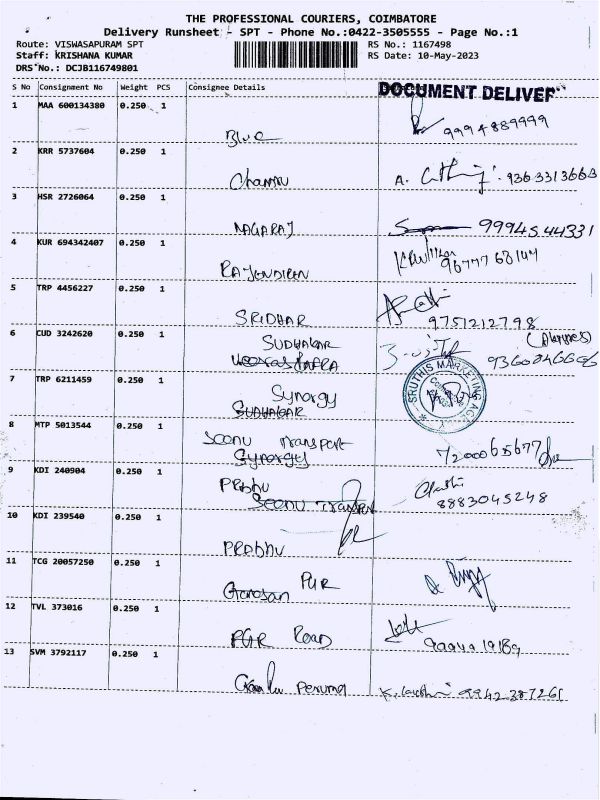 THE PROFESSIONAL COURIERS, COIMBATORE
Delivery Runsheet - SPT - Phone No.:0422-3505555 - Page No.:1
Route: VISWASAPURAM SPT RS No.: 1167498
Staff: KRISHANA KUMAR RS Date: 10-May-2023
DRS No.: DCJB116749801
S No Consignment No Weight PCS Consignee Details
DOCUMENT DELIVER
1 MAA 600134380 0.250 1
Blue 9994889999
2 KRR 5737604 0.250 1
A. 9363313663
3 HSR 2726064 0.250 1
NAGARAJ 9994544331
4 KUR 694342407 0.250 1
RAJENDIREN
5 TRP 4456227 0.250 1
SRIDHAR 9751212798
6 CUD 3242620 0.250 1
SUDHAKAR
7 TRP 6211459 0.250 1
SRUTHIS MARKETING AGENCY
Synergy
SUDHAKAR
8 MTP 5013544 0.250 1
Seenu Transport 7200065677
Synergy
9 KDI 240904 0.250 1
Prabhu
Seenu Transport 8883045248
10 KDI 239540 0.250 1
PRabhu
11 TCG 20057250 0.250 1
Ganesan PUR
12 TVL 373016 0.250 1
PGR Road
13 SVM 3792117 0.250 1
Perumal 9942387261